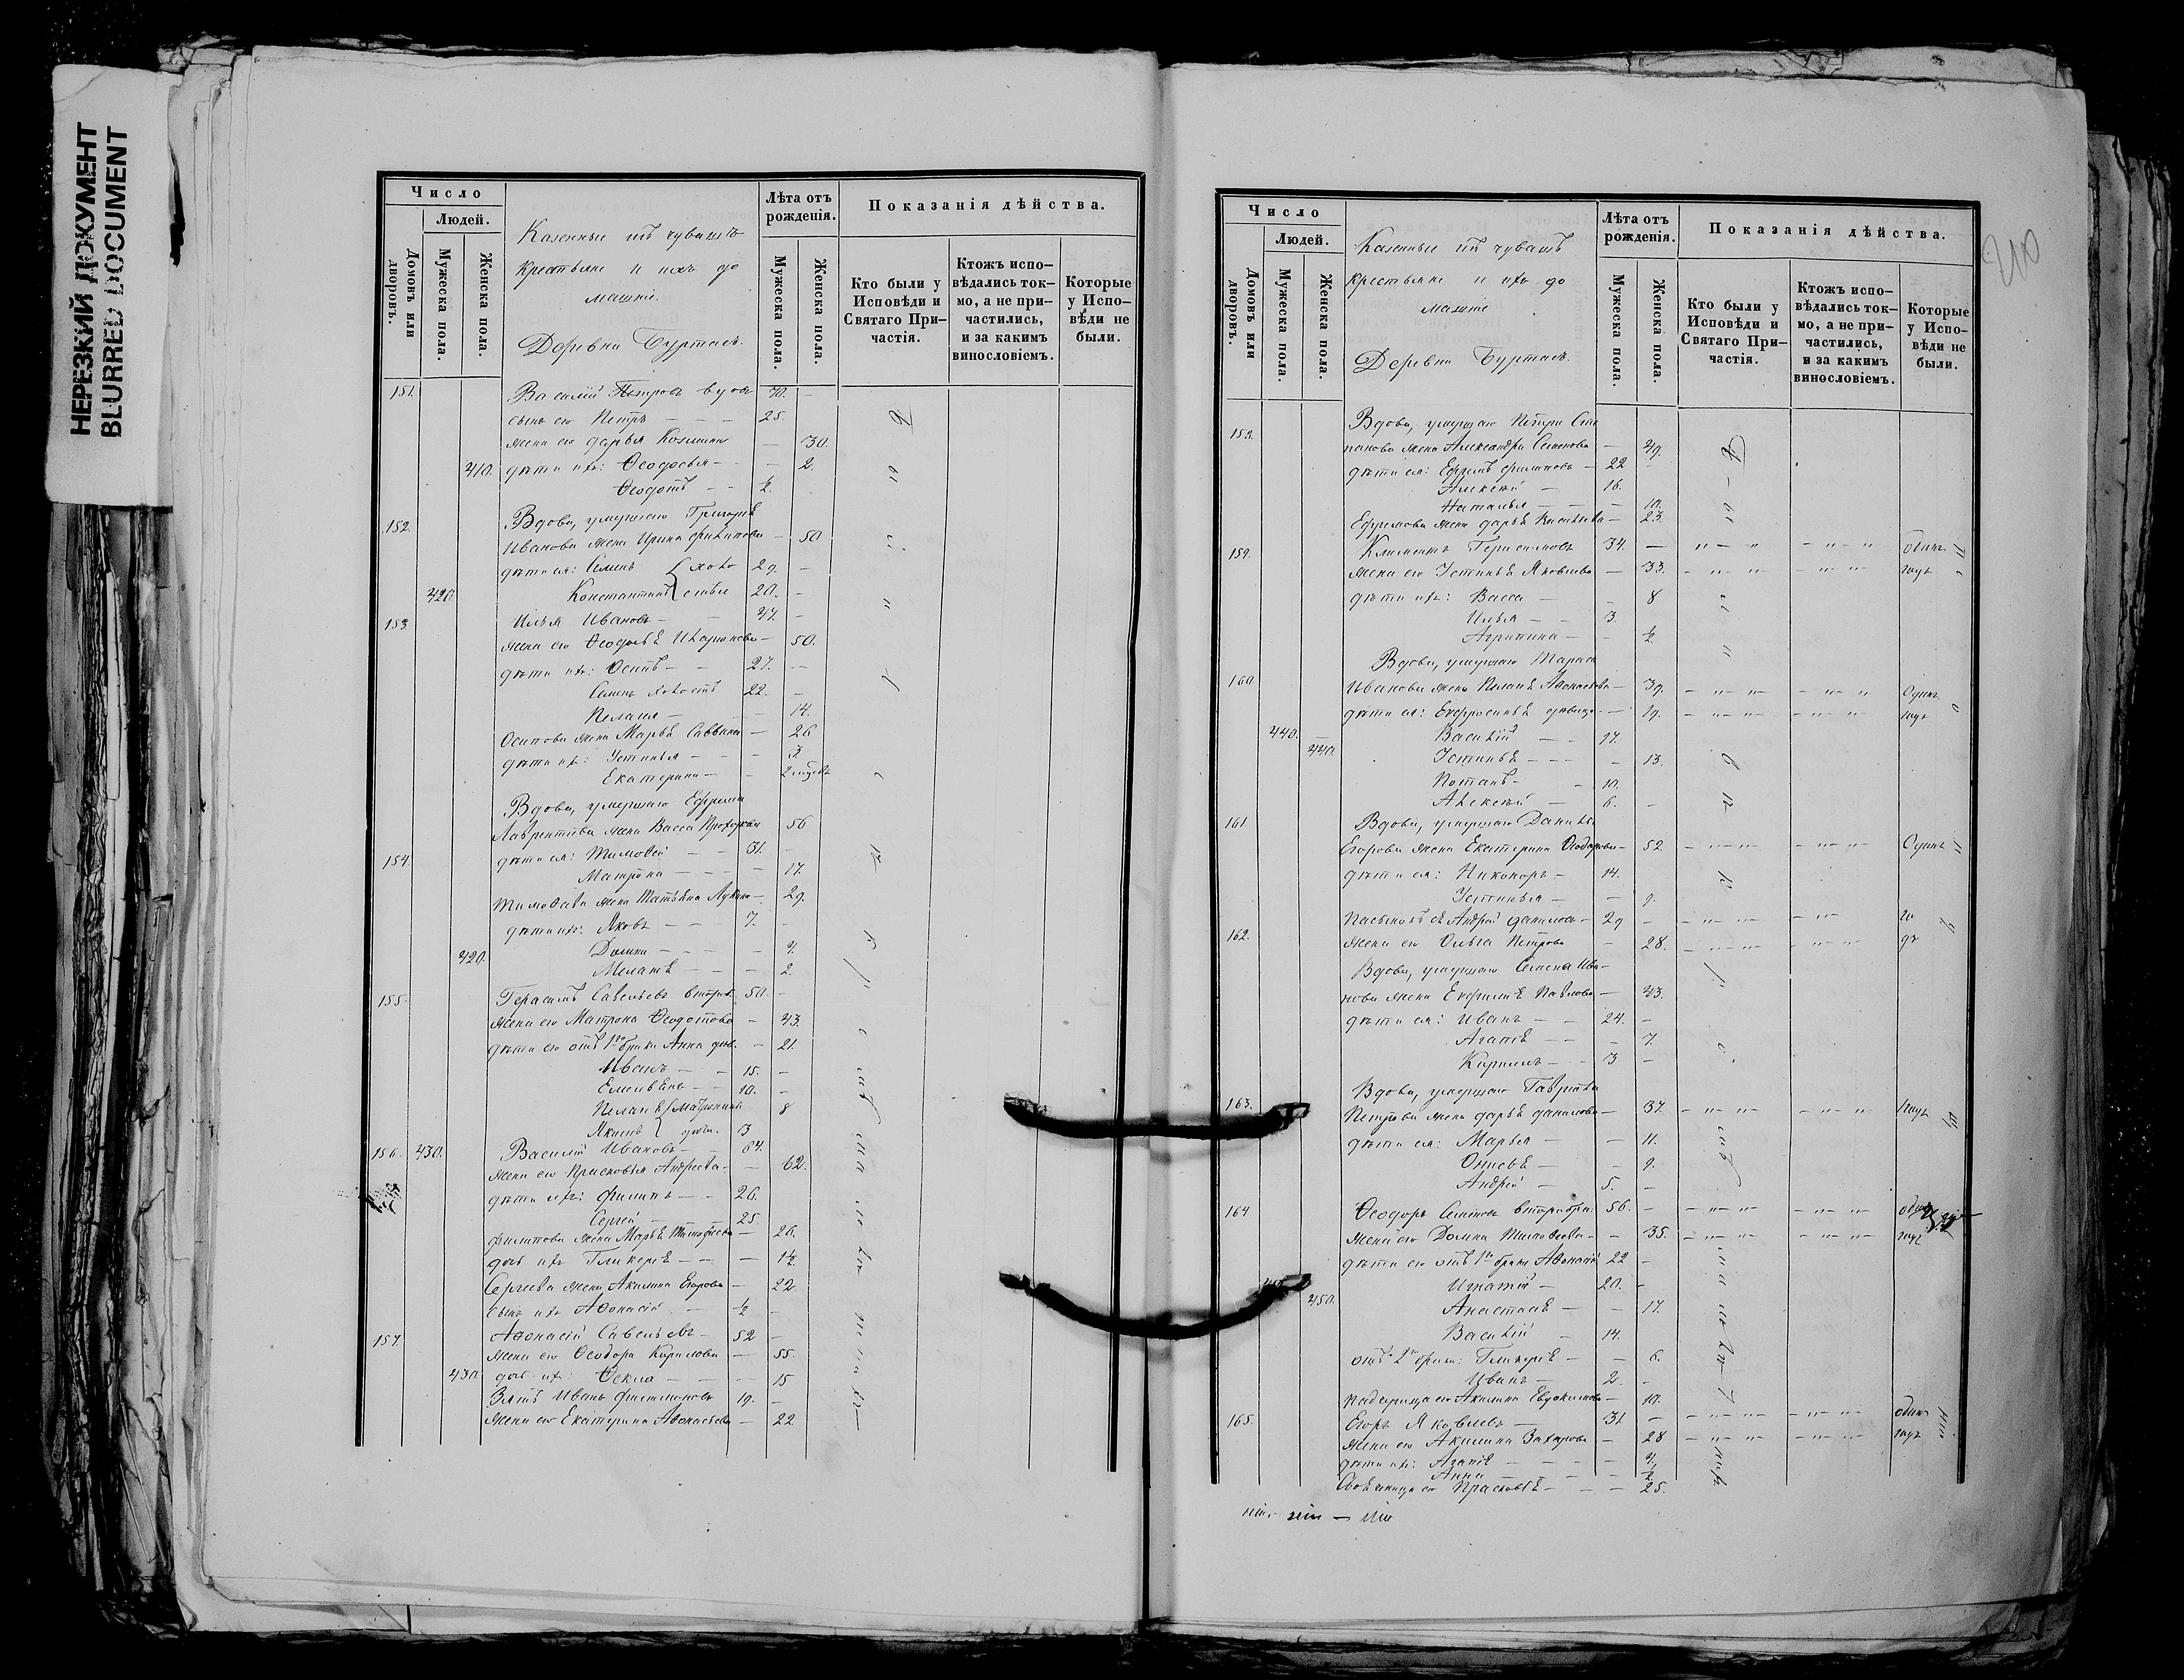 НЕРЕЗКИЙ ДОКУМЕНТ
BLURRED DOCUMENT
Число
Людей.
Домовъ или дворовъ.
Мужеска пола.
Женска пола.
Казенные изъ чувашъ
крестьяне и ихъ до
машніе.
Деревни Буртасъ.
Лѣта отъ рожденія.
Мужеска пола.
Женска пола.
Показанія дѣйства.
Кто были у Исповѣди и Святаго При-частія.
Ктожъ испо-вѣдались ток-мо, а не при-частились, и за какимъ винословіемъ.
Которые у Испо-вѣди не были.
151. Василій Петровъ вдовъ 70. -
сынъ его Петръ - - 25.
жена его Дарья Козмина - 30.
410. дѣти ихъ: Ѳеодосья - - 2.
Ѳеодотъ - - ½.
152. Вдова, умершаго Григорья
Иванова жена Ирина Филипова - 50
дѣти ея: Семенъ холо 29. -
420. Константинъ стые 20. -
153. Илья Ивановъ - 47. -
жена его Ѳеодосья - 50.
дѣти ихъ: Осипъ - - 27. --
Семенъ холостъ 22. -
Пелагея - - 14.
Осипова жена Марья Саввина - 26
дѣти ихъ: Устинья - - - 3
Екатерина - - 2 мѣсяц
Вдова, умершаго Ефрема
Лаврентьева жена Васса 56
154. дѣти ея: Тимоѳей - - 31. -
Матрона - - - - 17.
Тимоѳеева жена Татьяна Лукина - 29.
дѣти ихъ: Яковъ - - - 7. -
420. Домна - - - - 4.
Меланья - - - 2.
155. Герасимъ Савельевъ вторбр. 50. -
жена его Матрона Ѳеодотова - 43.
дѣти его отъ 1го брака Анна дѣв. - 21.
Иванъ - - 15. -
Емельянъ - - 10. -
Пелагея Матронины 8
Якимъ дѣти. 3
156. 430. Василій Ивановъ - - 64.
жена его Прасковья Андреева - - 62.
дѣти ихъ: Филипъ - - 26.
Сергей - 25.
Филипова жена Марья Тимофеева - 26.
дочь ихъ Гликерья - - - 1½
Сергеева жена Акилина Егорова - 22.
сынъ ихъ Аѳонасій - ½ -
157. Аѳонасій Савельевъ - 52 -
жена его Ѳеодора Кирилова - 55.
430. дочь ихъ: Ѳекла - - - 15
Зять Иванъ Филимоновъ 19. -
жена его Екатерина Аѳонасьева - 22.
Число
Людей.
Домовъ или дворовъ.
Мужеска пола.
Женска пола.
Казенные изъ чувашъ
крестьяне и ихъ до
машніе
Деревни Буртасъ.
Лѣта отъ рожденія.
Мужеска пола.
Женска пола.
Показанія дѣйства.
Кто были у Исповѣди и Святаго При-частія.
Ктожъ испо-вѣдались ток-мо, а не при-частились, и за какимъ винословіемъ.
Которые у Испо-вѣди не были.
158. Вдова, умершаго Петра Сте
панова жена Александра Семенова - 49.
дѣти ея: Ефремъ Филиповъ - 22 -
Алексѣй - 16.
Наталья - - - 10.
Ефремова жена Дарья Васильева - 23.
159. Климентъ Герасимовъ 34. - одинъ
жена его Устинья Яковлева - 33. годъ
дѣти ихъ: Васса - - 8
Илья - - 3.
Агрипина - - ½
Вдова, умершаго Тараса
160. Иванова жена Пелагея Аѳонасьева - 39. Одинъ
дѣти ея: Ефросинья дѣвица - - 19. годъ
440. Василій - - 17.
440. Устинья - - - - 13.
Потапъ - - 10.
Алексѣй - 6. -
161 Вдова, умершаго Данила
Егорова жена Екатерина Ѳеодорова - 52. Одинъ
дѣти ея: Никоноръ - 14.
Устинья - - 9.
Пасынокъ ея Андрей Даниловъ - 29 - го
162. жена его Ольга Петрова - 28. дъ
Вдова, умершаго Семена Ива-
нова жена Евфимья Павлова - 43.
дѣти ея: Иванъ - - 24. -
Агапья - - - 7.
Кирилъ - - 3 -
Вдова, умершаго Гаврила
163. Петрова жена Дарья Данилова - 37. годъ
дѣти ея: Марья - - 11.
Онисья - - 9.
Андрей - 5. -
164 Ѳеодоръ Семеновъ второбра. 56. - одинъ
жена его Домна Тимоѳеева - - 35. годъ
дѣти его отъ 1го брака Аѳонасій 22 -
Игнатій - 20. -
450. Анастасья - - 17.
Василій - 14.
отъ 2го брака: Гликерья - - 6.
Иванъ - 2. -
Падчерица его Акилина Евдокимова - 10.
165. Егоръ Яковлевъ - 31. - одинъ
жена его Акилина Захарова - 28 годъ
дѣти ихъ: Агапья - - - 4.
Анна - - - ½
Своячиница его Прасковья - - - 25.